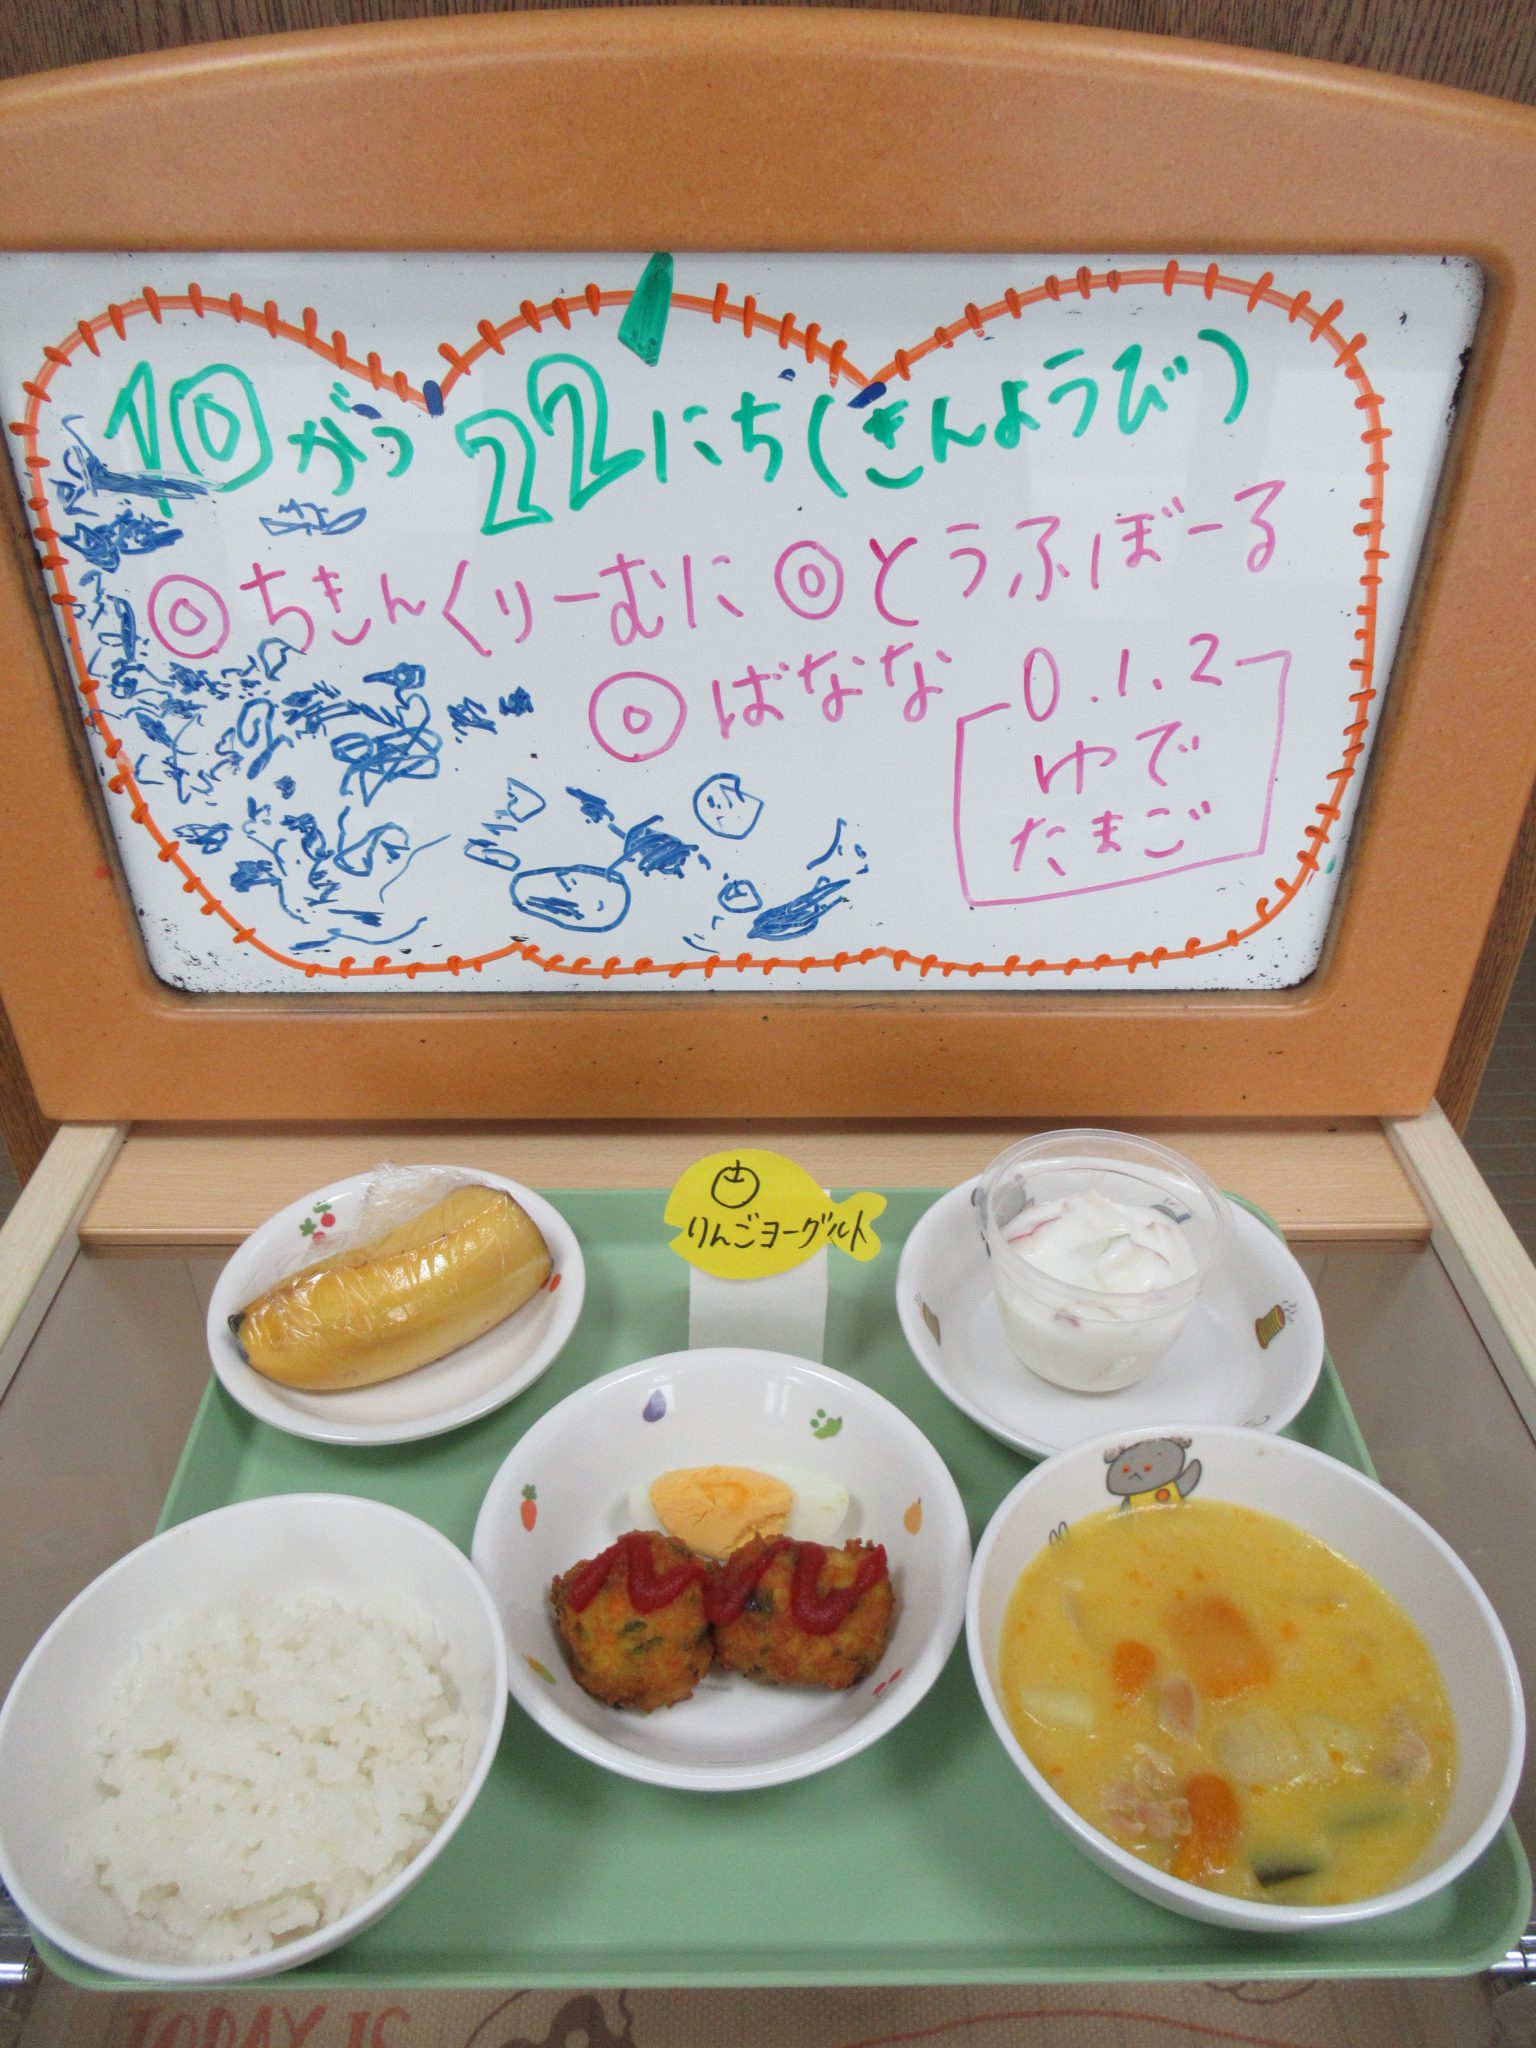 10がつ22にち(きんようび)
◎ちきんくりーむに ◎とうふぼーる
◎ばなな
0.1.2
ゆで
たまご
りんごヨーグルト
TODAY IS